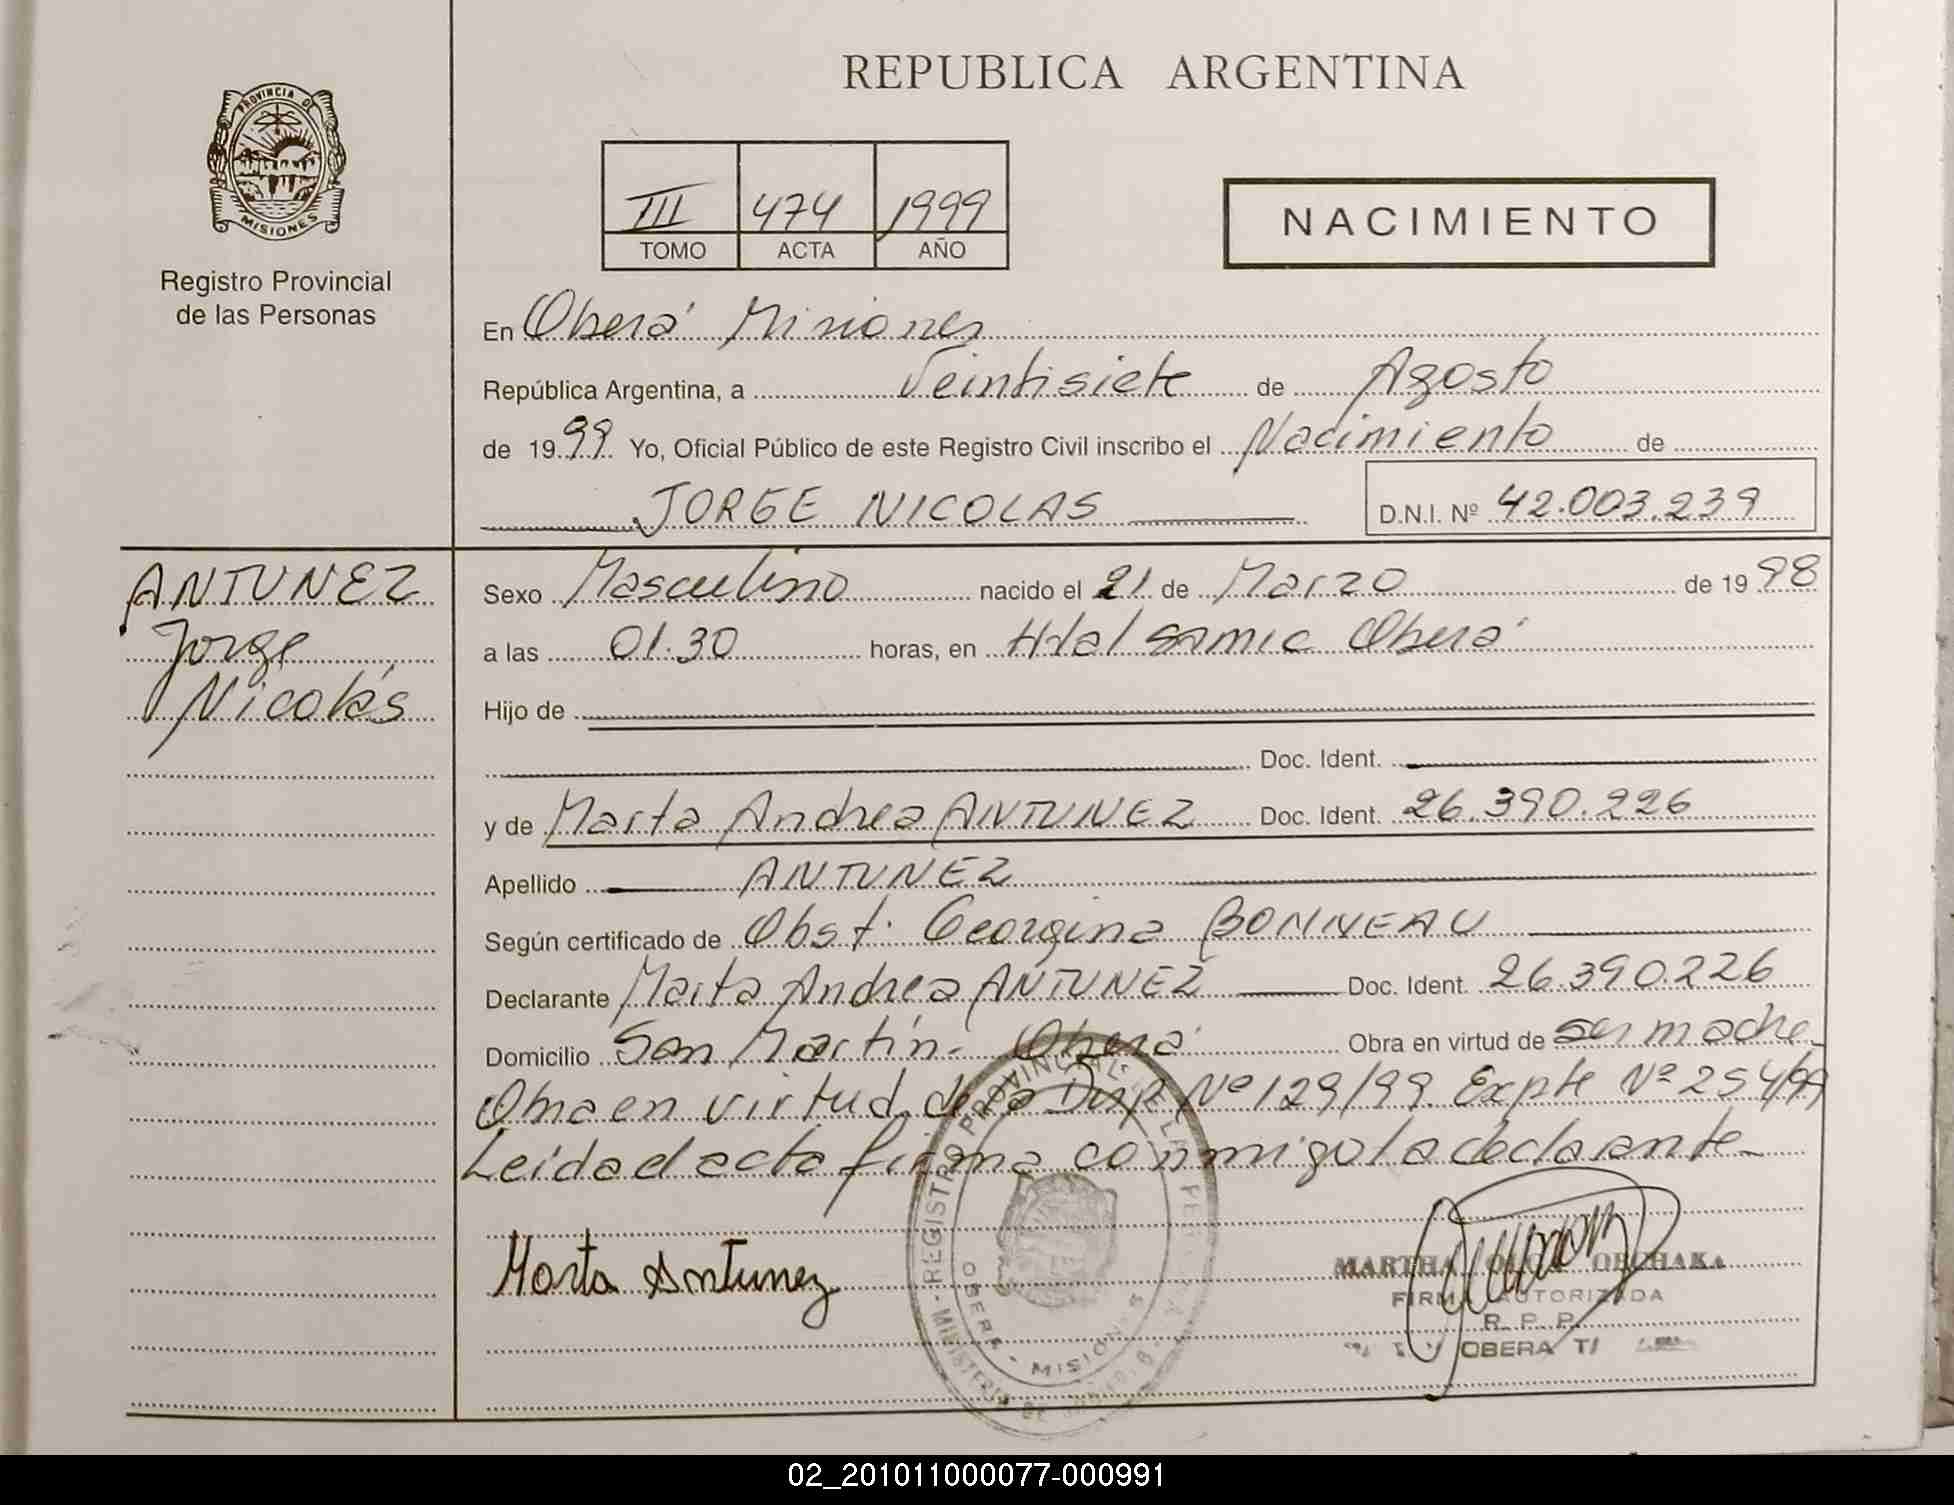 REPUBLICA ARGENTINA
PROVINCIA DE
MISIONES
Registro Provincial
de las Personas
III 474 1999
TOMO ACTA AÑO
NACIMIENTO
En Oberá Misiones
República Argentina, a Veintisiete de Agosto
de 1999 Yo, Oficial Público de este Registro Civil inscribo el Nacimiento de
JORGE NICOLAS D.N.I. Nº 42.003.239
ANTUNEZ
Jorge
Nicolás
Sexo Masculino nacido el 21 de Marzo de 1998
a las 01.30 horas, en Htal Samic Oberá
Hijo de
Doc. Ident.
y de Marta Andrea ANTUNEZ Doc. Ident. 26.390.226
Apellido ANTUNEZ
Según certificado de Obst. Georgina BONNEAU
Declarante Marta Andrea ANTUNEZ Doc. Ident. 26.390.226
Domicilio San Martín - Oberá Obra en virtud de ser madre
Obra en virtud de la Disp. Nº 129/99 Expte Nº 254/99
Leída el acta firma conmigo la declarante
Marta Antunez
REGISTRO PROVINCIAL DE LAS
OBERA - MISIONES
MINISTERIO DE
MARTHA OLGA
FIRMA AUTORIZADA
R. P. P.
OBERA
02_201011000077-000991